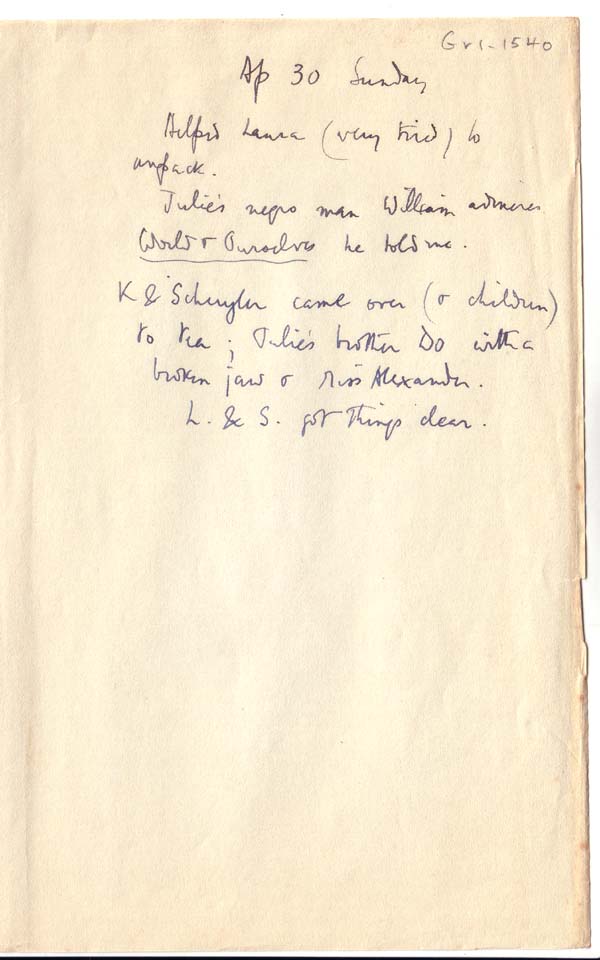 Gv1-1540
Ap 30 Sunday
Helped Laura (very tired) to
unpack.
Julie's negro man William admires
World & Ourselves he told me.
K & Schuyler came over (& children)
to tea; Julie's brother Do with a
broken jaw & Miss Alexander.
L. & S. got things clear.